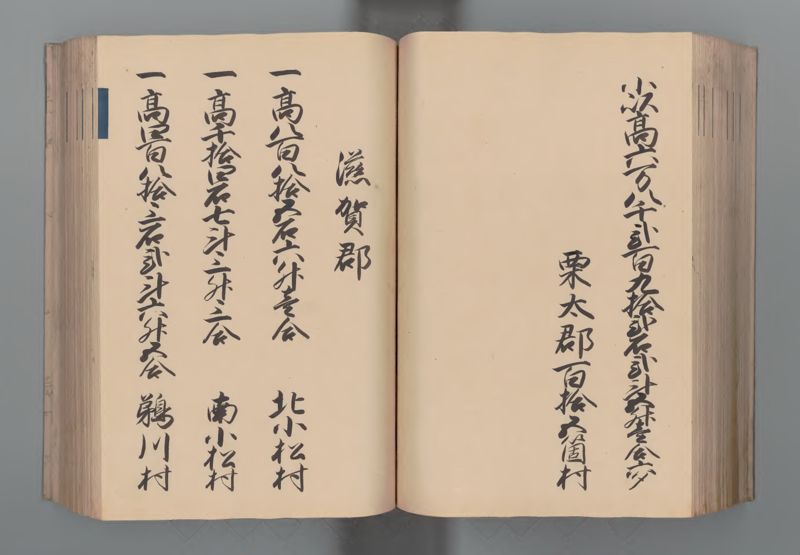 小以高六万八千弐百九拾弐石弐斗五升壱合六夕
栗太郡百拾五箇村
滋賀郡
一高八百八拾五石六升壱合
北小松村
一高千拾四石七斗三升三合
南小松村
一高四百八拾三石弐斗六升五合
鵜川村